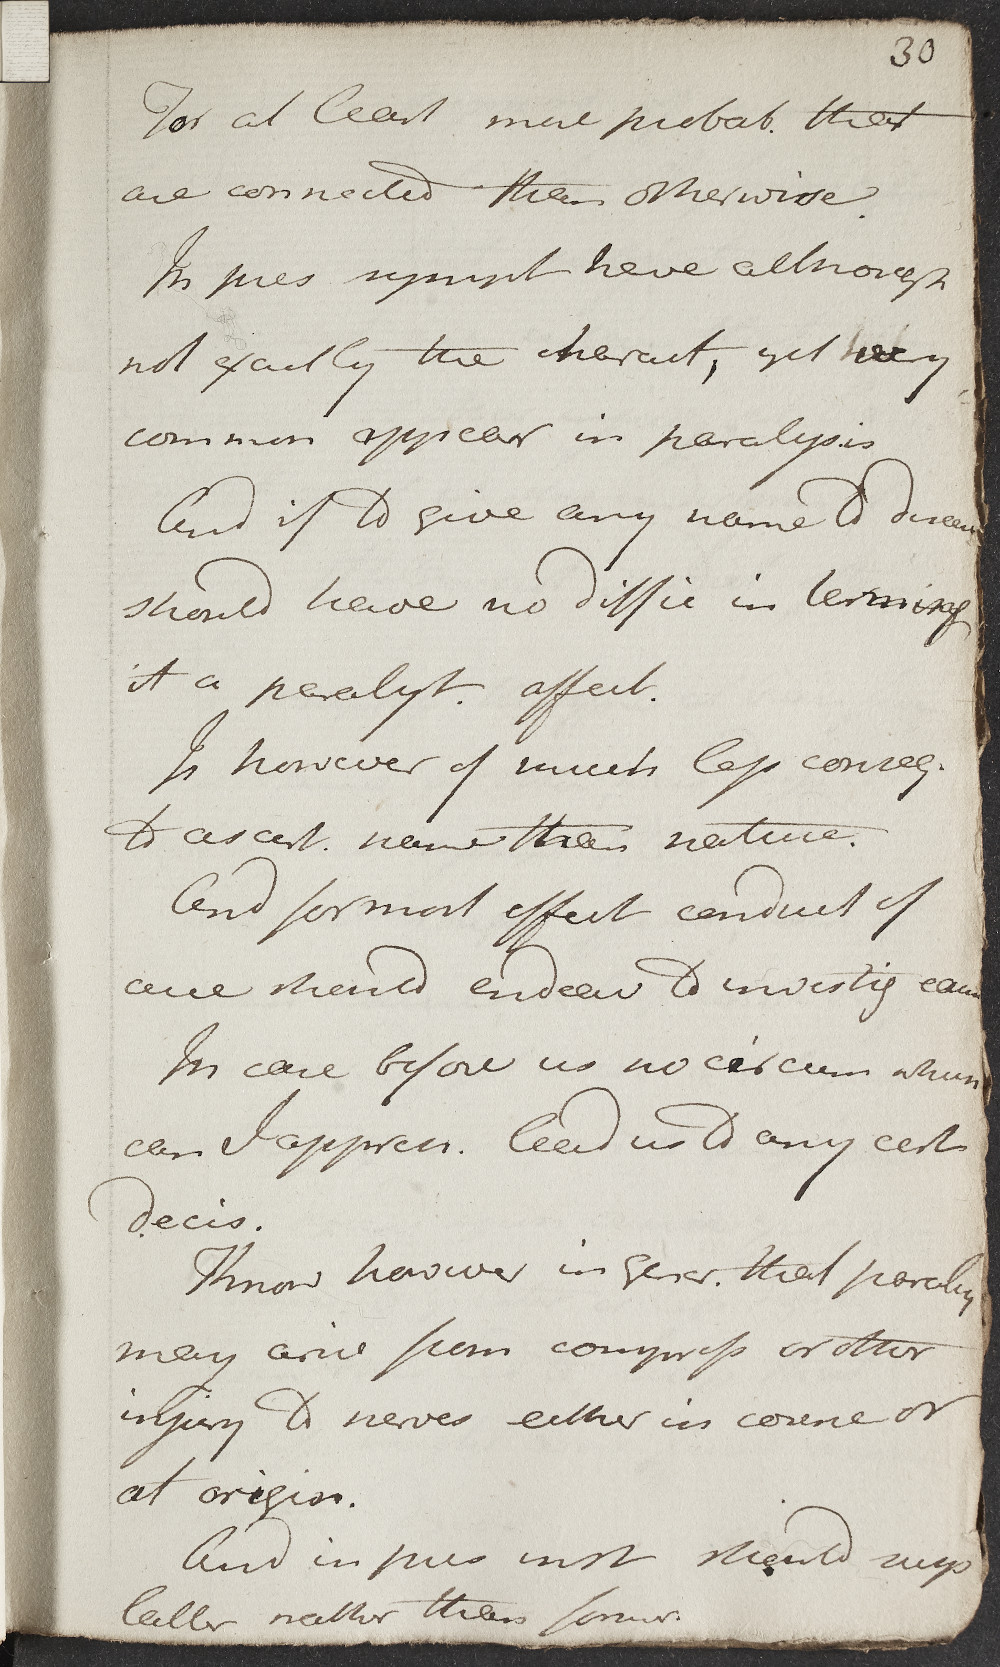 30
For at least more probab. that
are connected than otherwise.
In pres sympt have although
not exactly the charact, yet very
common appear in paralysis
And if to give any name to disease
should have no diffic in terming
it a paralyt. affect.
Is however of much less conseq.
to ascert. name than nature.
And for most effect conduct of
case should endeav to investig cause
In case before us no circum whence
can I appreh. lead us to any cert
decis.
Know however in gener. that paraly
may arise from compress or other
injury to nerves either in course or
at origin.
And in pres inst should susp
latter rather than former.